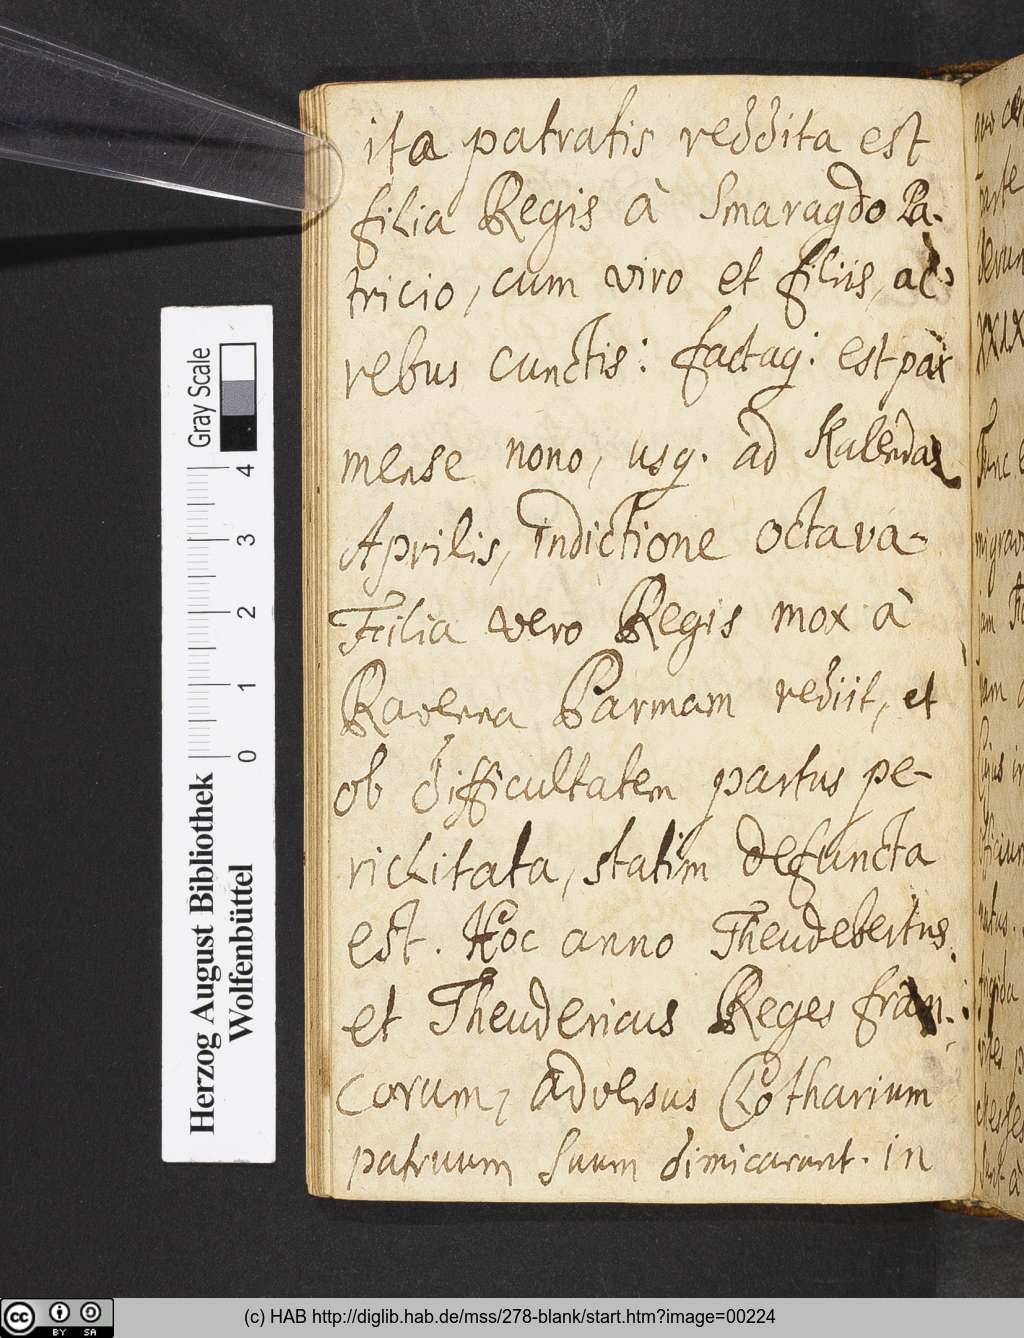 ita patratis reddita est
filia Regis à Smaragdo Pa-
tricio, cum viro et filiis, ac
rebus cunctis: factaq: est pax
mense nono, usq. ad Kalendas
Aprilis, indictione octava-
Filia vero Regis mox à
Ravenna Parmam rediit, et
ob difficultatem partus pe-
riclitata, statim defuncta
est. Hoc anno Theudebertus
et Theudericus Reges fran-
corum, adversus Clotharium
patruum suum dimicarunt. in
Gray Scale
4
3
2
1
0
Herzog August Bibliothek
Wolfenbüttel
cc BY SA
(c) HAB http://diglib.hab.de/mss/278-blank/start.htm?image=00224